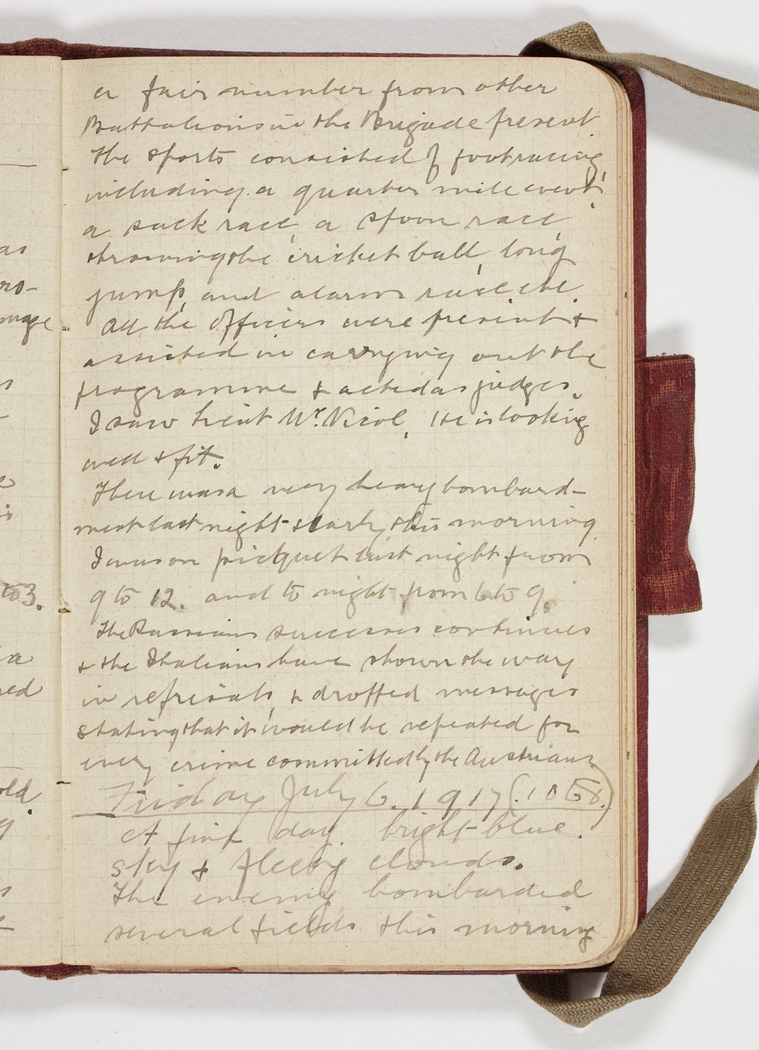 as
ro-
mage
s
s
to 3.
a
ed
old.
s
a fair number from other
Battalions in the Brigade present
The sports consisted of footracing,
including a quarter mile event,
a sack race, a spoon race
throwing the cricket ball, long
jump, and alarm race etc.
All the Officers were present &
assisted in carrying out the
programme & acted as judges.
I saw Lieut Mr. Nicol, He is looking
well & fit.
There was a very heavy bombard-
ment last night & early this morning.
I was on picquet last night from
9 to 12. and to night from 6 to 9.
The Russian successes continues
& the Italians have shown the way
in reprisals, & dropped messages
stating that it would be repeated for
every crime committed by the Austrians
Friday July 6. 1917
A fine day bright blue.
sky & fleecy clouds.
The enemy bombarded
several fields this morning